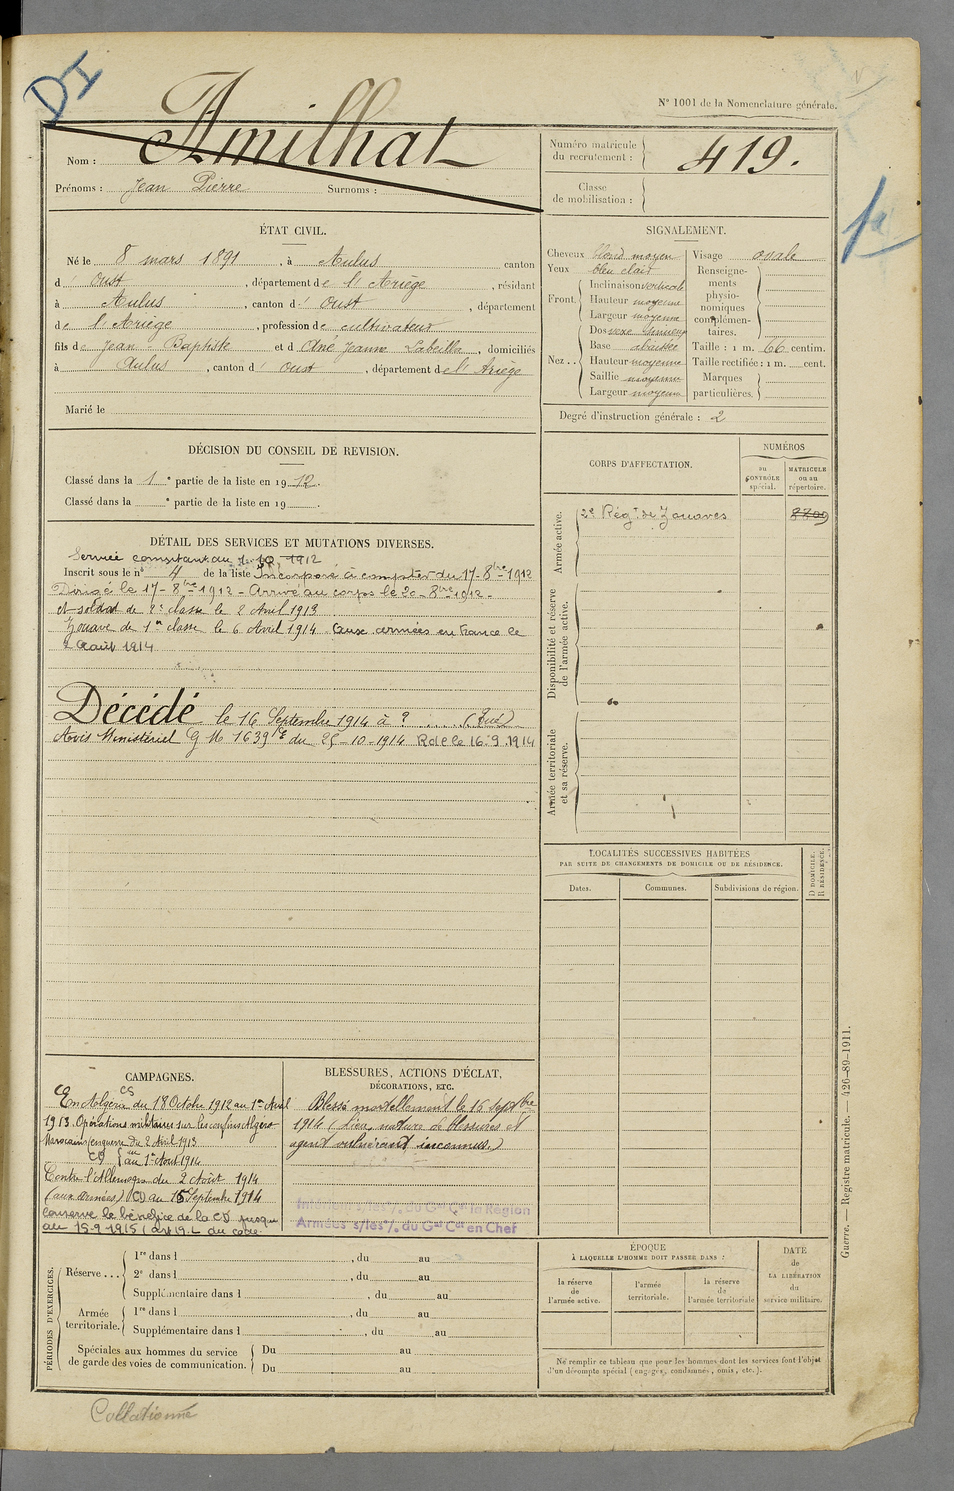 DI
N° 1001 de la Nomenclature générale.
Nom : Amilhat
Prénoms : Jean Pierre Surnoms :
Numéro matricule du recrutement : 419.
Classe de mobilisation :
ÉTAT CIVIL.
Né le 8 mars 1891, à Aulus canton
d' Oust, département de l'Ariège, résidant
à Aulus, canton d' Oust, département
de l'Ariège, profession de cultivateur
fils de Jean-Baptiste et d'Ane Jeanne Labeilla, domiciliés
à Aulus, canton d' Oust, département de l'Ariège
Marié le
SIGNALEMENT.
Cheveux blond moyen
Yeux bleu clair
Front. Inclinaison verticale
Hauteur moyenne
Largeur moyenne
Nez .. Dos vexe
Base abaissée
Hauteur moyenne
Saillie moyenne
Largeur moyenne
Visage ovale
Renseigne-
ments
physio-
nomiques
complémen-
taires.
Taille : 1 m. 66 centim.
Taille rectifiée : 1 m. cent.
Marques
particulières.
Degré d'instruction générale : 2
DÉCISION DU CONSEIL DE REVISION.
Classé dans la 1e partie de la liste en 1912.
Classé dans la e partie de la liste en 19 .
CORPS D'AFFECTATION.
NUMÉROS
au CONTRÔLE spécial.
MATRICULE ou au répertoire.
Armée active.
2e Régt de Zouaves 8809
Disponibilité et réserve de l'armée active.
Armée territoriale et sa réserve.
DÉTAIL DES SERVICES ET MUTATIONS DIVERSES.
Service comptant du 1-10-1912
Inscrit sous le n° 4 de la liste Incorporé à compter du 17-8bre-1912
Dirigé le 17-8bre-1912 - Arrivé au corps le 20-8bre-1912-
et soldat de 2e classe le 2 Avril 1913
Zouave de 1re classe le 6 Avril 1914 aux armées en France le
2 Août 1914
Décédé le 16 Septembre 1914 à ? ..... (Tué)
Avis Ministériel G M 1639 E du 25-10-1914 Rdc le 16.9.1914
LOCALITÉS SUCCESSIVES HABITÉES
PAR SUITE DE CHANGEMENTS DE DOMICILE OU DE RÉSIDENCE.
Dates. Communes. Subdivisions de région.
D DOMICILE.
R RÉSIDENCE.
CAMPAGNES.
CS
En Algérie du 18 Octobre 1912 au 1er Avril
1913. Opérations militaires sur les confins Algéro
Marocains en guerre du 2 Avril 1913
CD au 1er Août 1914
Contre l'Allemagne du 2 Août 1914
(aux armées) CD au 15 Septembre 1914
Conserve le bénéfice de la CD jusqu'
au 15-9-1915 (art 19-L du code
BLESSURES, ACTIONS D'ÉCLAT,
DÉCORATIONS, ETC.
Blessé mortellement le 15 Septbre
1914 (lieu, nature de blessures et
agent vulnérant inconnus.)
Intérieur s/les % du Gral Cdt la Région
Armées s/les % du Gral Cdt en Chef
PÉRIODES D'EXERCICES.
Réserve ... 1re dans l , du au
2e dans l , du au
Supplémentaire dans l , du au
Armée territoriale. 1re dans l , du au
Supplémentaire dans l , du au
Spéciales aux hommes du service
de garde des voies de communication.
Du au
Du au
ÉPOQUE
À LAQUELLE L'HOMME DOIT PASSER DANS :
la réserve de l'armée active.
l'armée territoriale.
la réserve de l'armée territoriale
DATE de LA LIBÉRATION du service militaire.
Ne remplir ce tableau que pour les hommes dont les services font l'objet
d'un décompte spécial (engagés, condamnés, omis, etc.).
Guerre. — Registre matricule. — 426-89-1911.
Collationné